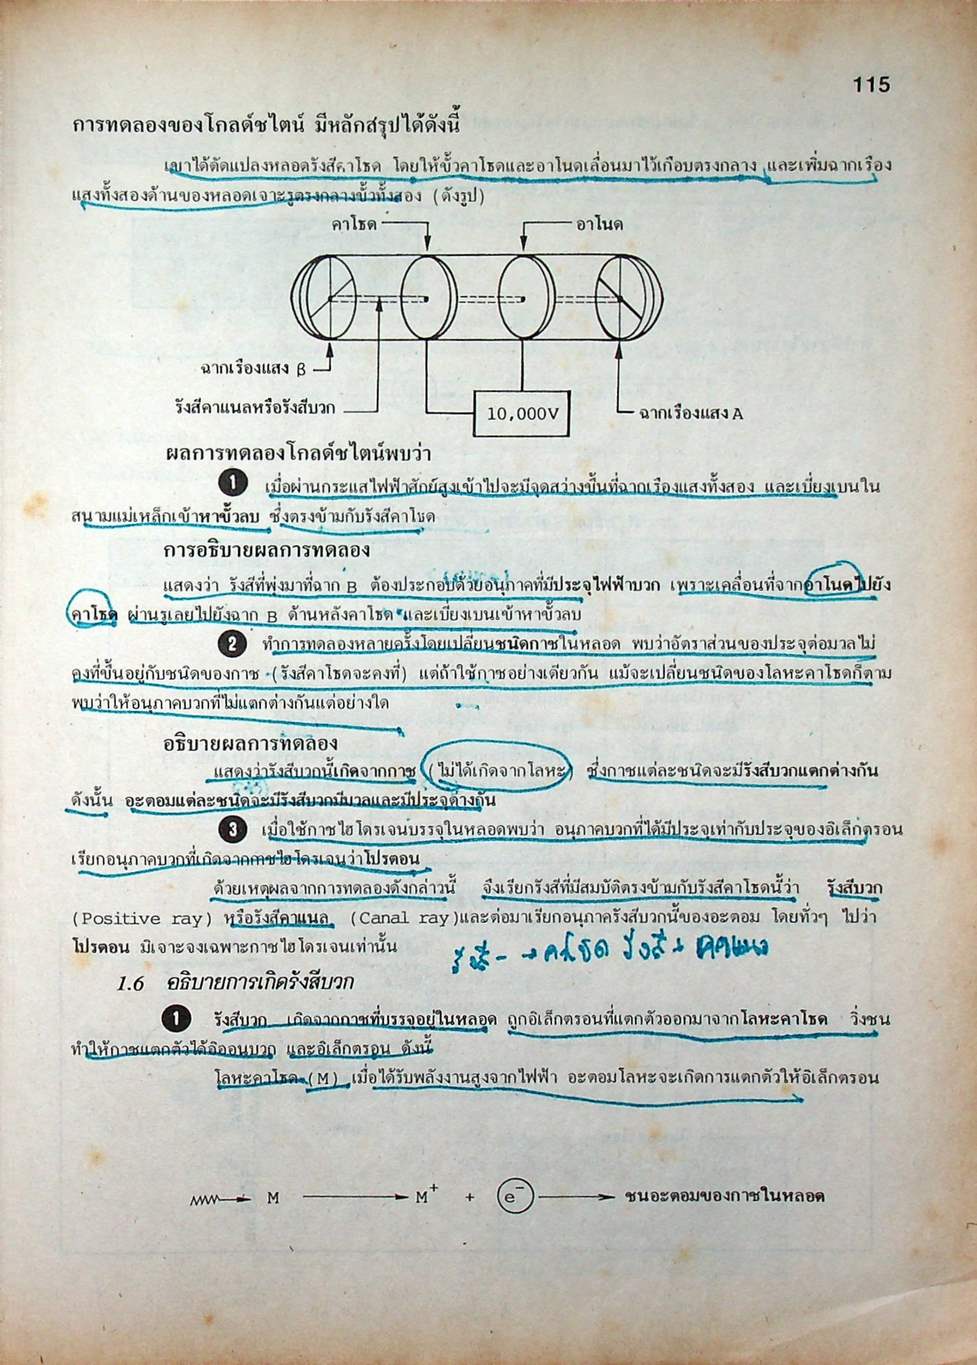 115
การทดลองของโกลด์ชไตน์ มีหลักสรุปได้ดังนี้
เขาได้ดัดแปลงหลอดรังสีคาโธด โดยให้ขั้วคาโธดและอาโนดเลื่อนมาไว้เกือบตรงกลาง และเพิ่มฉากเรือง
แสงทั้งสองด้านของหลอดเจาะรูตรงกลางขั้วทั้งสอง (ดังรูป)
คาโธด อาโนด
ฉากเรืองแสง β
รังสีคาแนลหรือรังสีบวก 10,000V ฉากเรืองแสง A
ผลการทดลองโกลด์ชไตน์พบว่า
1 เมื่อผ่านกระแสไฟฟ้าศักย์สูงเข้าไปจะมีจุดสว่างขึ้นที่ฉากเรืองแสงทั้งสอง และเบี่ยงเบนใน
สนามแม่เหล็กเข้าหาขั้วลบ ซึ่งตรงข้ามกับรังสีคาโธด
การอธิบายผลการทดลอง
แสดงว่า รังสีที่พุ่งมาที่ฉาก B ต้องประกอบด้วยอนุภาคที่มีประจุไฟฟ้าบวก เพราะเคลื่อนที่จากอาโนดไปยัง
คาโธด ผ่านรูเลยไปยังฉาก B ด้านหลังคาโธด และเบี่ยงเบนเข้าหาขั้วลบ
2 ทำการทดลองหลายครั้งโดยเปลี่ยนชนิดกาซในหลอด พบว่าอัตราส่วนของประจุต่อมวลไม่
คงที่ขึ้นอยู่กับชนิดของกาซ (รังสีคาโธดจะคงที่) แต่ถ้าใช้กาซอย่างเดียวกัน แม้จะเปลี่ยนชนิดของโลหะคาโธดก็ตาม
พบว่าให้อนุภาคบวกที่ไม่แตกต่างกันแต่อย่างใด
อธิบายผลการทดลอง
แสดงว่ารังสีบวกนี้เกิดจากกาซ (ไม่ได้เกิดจากโลหะ) ซึ่งกาซแต่ละชนิดจะมีรังสีบวกแตกต่างกัน
ดังนั้น อะตอมแต่ละชนิดจะมีรังสีบวกมีมวลและมีประจุต่างกัน
3 เมื่อใช้กาซไฮโดรเจนบรรจุในหลอดพบว่า อนุภาคบวกที่ได้มีประจุเท่ากับประจุของอิเล็กตรอน
เรียกอนุภาคบวกที่เกิดจากกาซไฮโดรเจนว่าโปรตอน
ด้วยเหตุผลจากการทดลองดังกล่าวนี้ จึงเรียกรังสีที่มีสมบัติตรงข้ามกับรังสีคาโธดนี้ว่า รังสีบวก
(Positive ray) หรือรังสีคาแนล (Canal ray)และต่อมาเรียกอนุภาครังสีบวกนี้ของอะตอม โดยทั่วๆ ไปว่า
โปรตอน มิเจาะจงเฉพาะกาซไฮโดรเจนเท่านั้น
รังสี - → คาโธด รังสี + คาแนล
1.6 อธิบายการเกิดรังสีบวก
1 รังสีบวก เกิดจากกาซที่บรรจุอยู่ในหลอด ถูกอิเล็กตรอนที่แตกตัวออกมาจากโลหะคาโธด วิ่งชน
ทำให้กาซแตกตัวได้อิออนบวก และอิเล็กตรอน ดังนี้
โลหะคาโธด (M) เมื่อได้รับพลังงานสูงจากไฟฟ้า อะตอมโลหะจะเกิดการแตกตัวให้อิเล็กตรอน
M → M⁺ + e⁻ → ชนอะตอมของกาซในหลอด